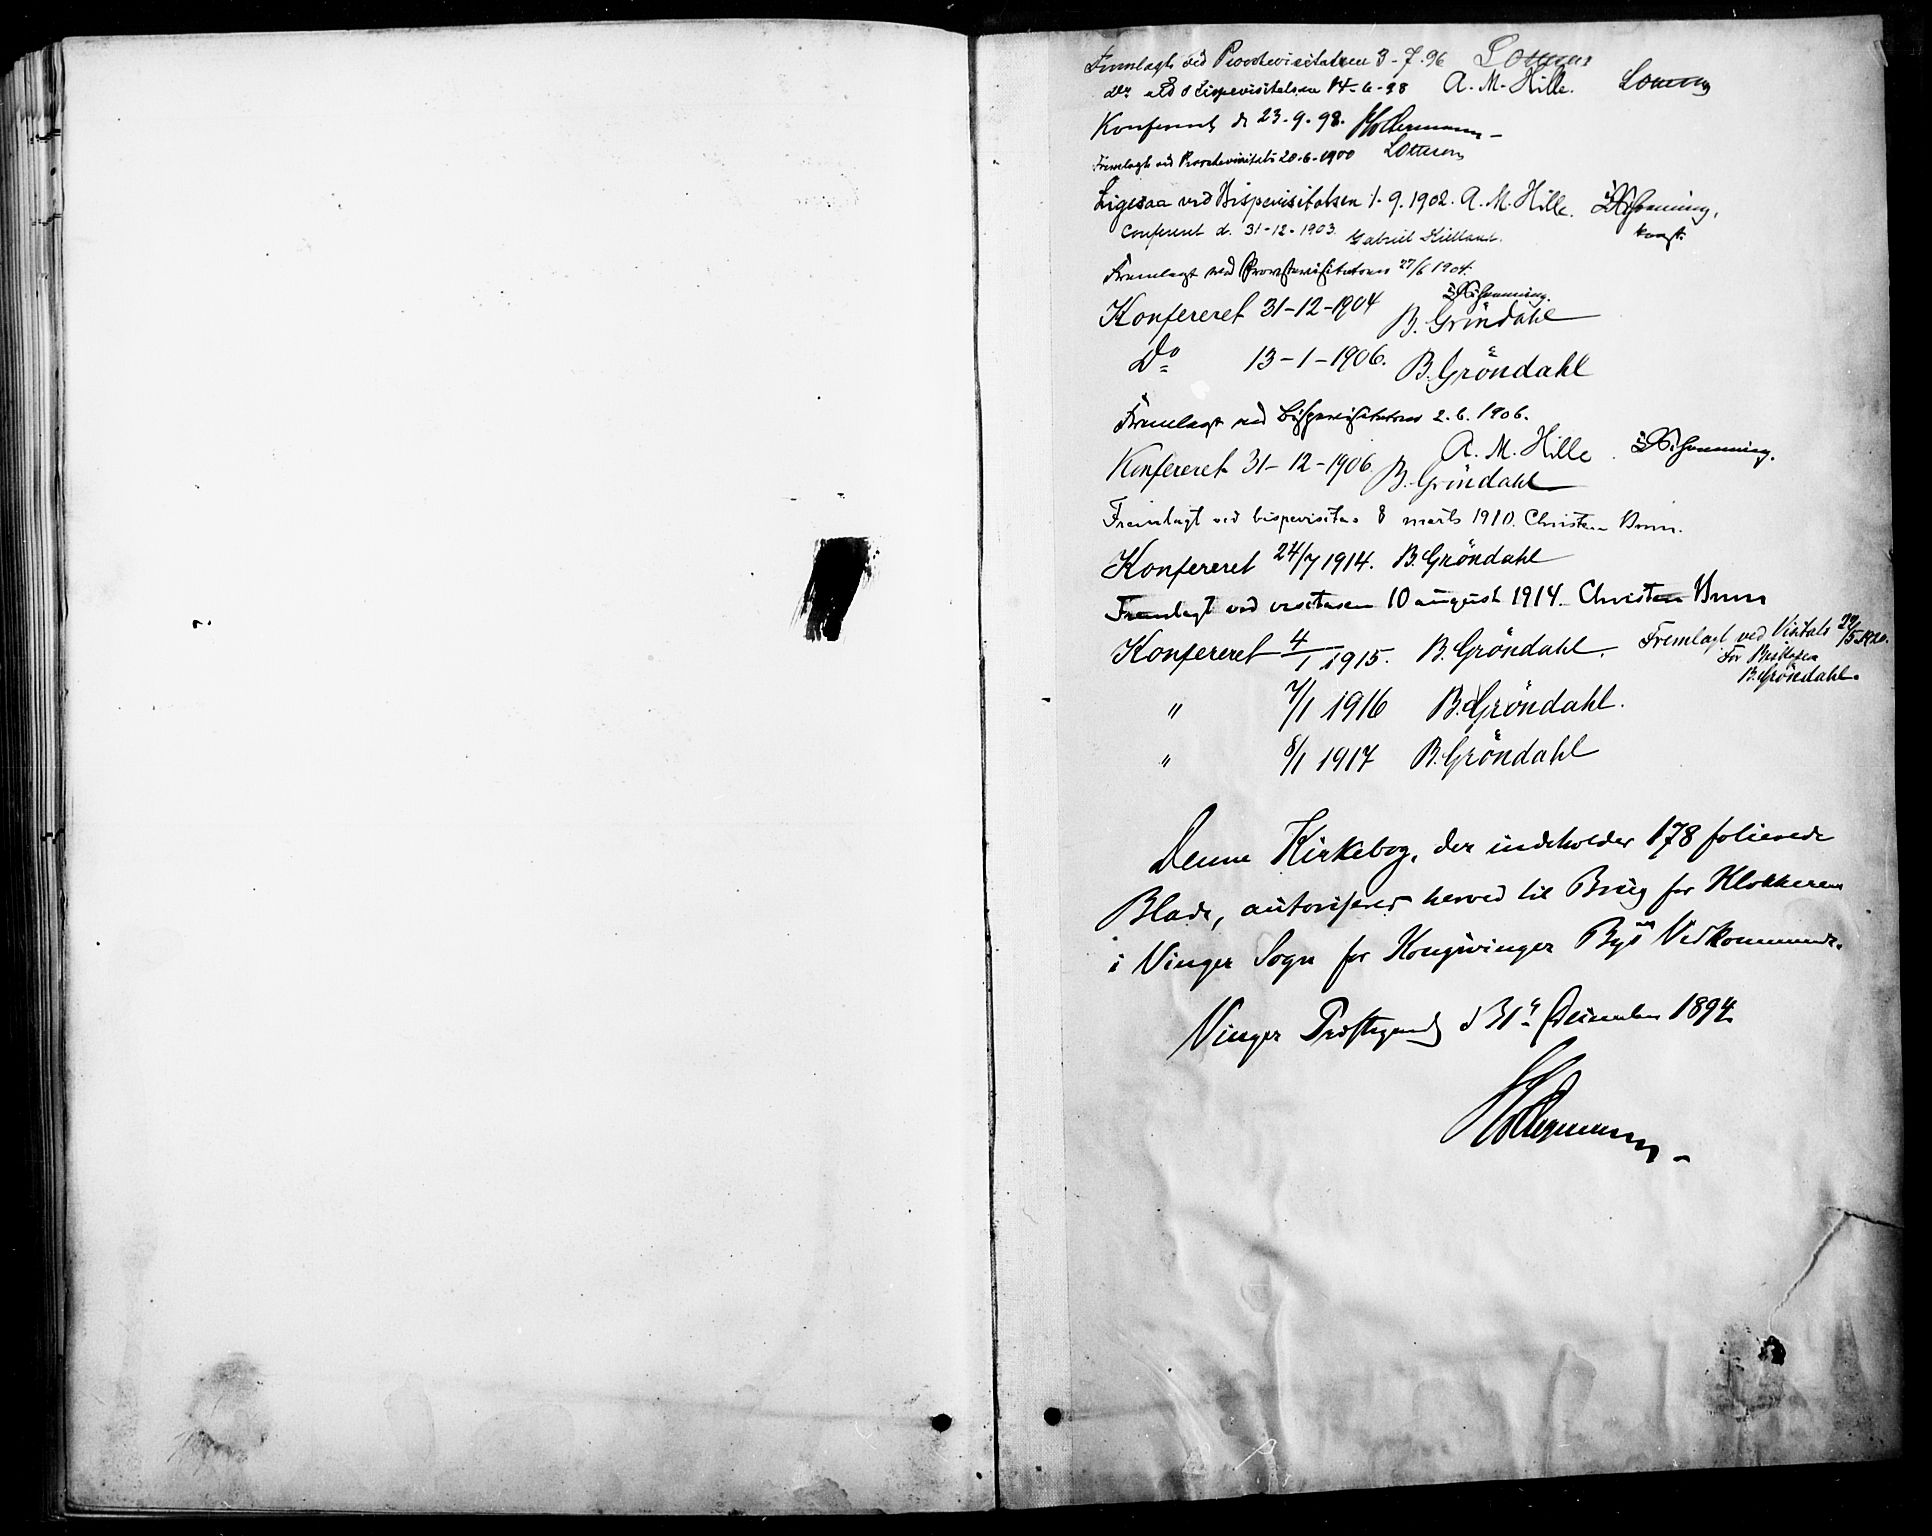 Fremlagt ved Provstevisitatsen 3-7-96
do ved Bispevisitatsen 14-6-98 A. M. Hille.
Konferert d. 23-9-98.
Fremlagt ved Provstevisitats 20-6-1900
Ligesaa ved Bispevisitatsen 1.9.1902. A. M. Hille.
konst.
Conferert d. 31-12-1903. Gabriel Kielland.
Fremlagt ved Provstevisitatsen 27/6 1904.
Konfereret 31-12-1904 B. Gröndahl
Do 13-1-1906. B. Gröndahl
Fremlagt ved Bispevisitatsen 2.6.1906.
A. M. Hille.
Konfereret 31-12-1906. B. Gröndahl
Fremlagt ved bispevisitas 8 marts 1910. Christen Brun.
Konfereret 24/7 1914. B. Gröndahl
Fremlagt ved visitasen 10 august 1914. Christen Brun
Konfereret 4/1 1915. B. Gröndahl. Fremlagt ved Visitats 29/5 1920.
For Biskopen
B. Gröndahl.
" 7/1 1916 B. Gröndahl.
" 8/1 1917 B. Gröndahl
Denne Kirkebog, der indeholder 178 folierede
Blade, autoriseres herved til Brug for Klokkeren
i Vinger Sogn for Kongsvinger Bys Vedkommende.
Vinger Provstegaard d 31te December 1894.